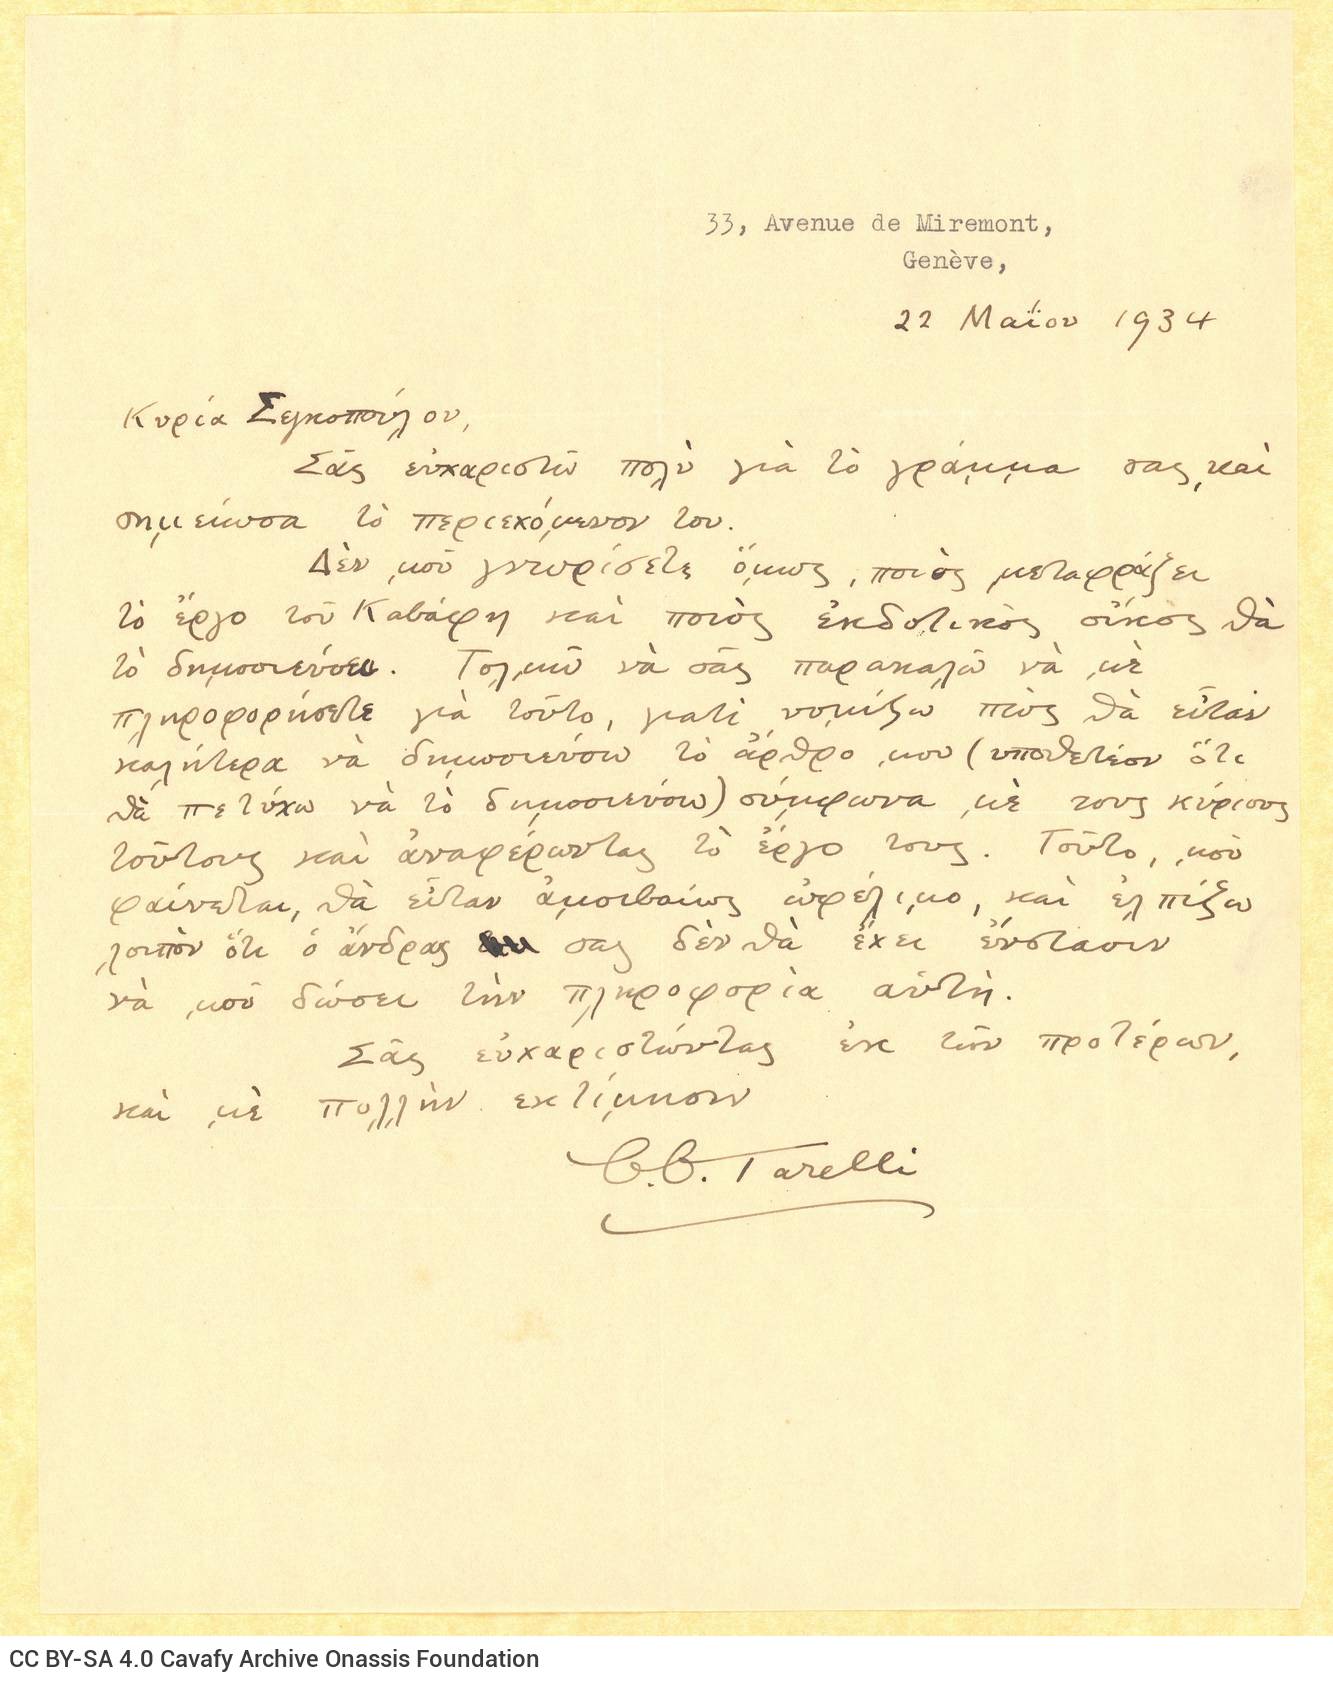 33, Avenue de Miremont,
Genève,
22 Μαΐου 1934
Κυρία Σεγκοπούλου,
Σᾶς εὐχαριστῶ πολὺ γιὰ τὸ γράμμα σας, καὶ
σημείωσα τὸ περιεχόμενον του.
Δὲν μοῦ γνωρίσετε ὅμως, ποιὸς μεταφράζει
τὸ ἔργο τοῦ Καβάφη καὶ ποιὸς ἐκδοτικὸς οἶκος θὰ
τὸ δημοσιεύσει. Τολμῶ νὰ σᾶς παρακαλῶ νὰ μὲ
πληροφορήσετε γιὰ τοῦτο, γιατὶ νομίζω πὼς θὰ εἶταν
καλήτερα νὰ δημοσιεύσω τὸ ἄρθρο μου (υποθετέον ὅτι
θὰ πετύχω νὰ τὸ δημοσιεύσω) σύμφωνα μὲ τους κύριους
τοῦτους καὶ ἀναφέρωντας τὸ ἔργο τους. Τοῦτο, μοῦ
φαίνεται, θὰ εἶταν ἀμοιβαίως ὠφέλιμο, καὶ ἐλπίζω
λοιπὸν ὅτι ὁ ἄνδρας σας δὲν θὰ ἔχει ἔνστασιν
νὰ μοῦ δώσει τὴν πληροφορία αὐτὴ.
Σᾶς εὐχαριστώντας ἐκ τῶν προτέρων,
καὶ μὲ πολλὴν εκτίμησιν
C.C. Tarelli
CC BY-SA 4.0 Cavafy Archive Onassis Foundation